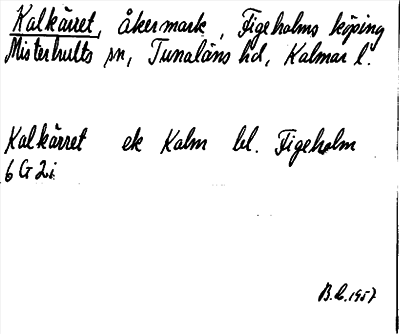 Kalkärret, åkermark, Figeholms köping
Misterhults sn, Tunaläns hd, Kalmar l.
Kalkärret ek Kalm bl. Figeholm
6 G 2 i
B.L. 1957